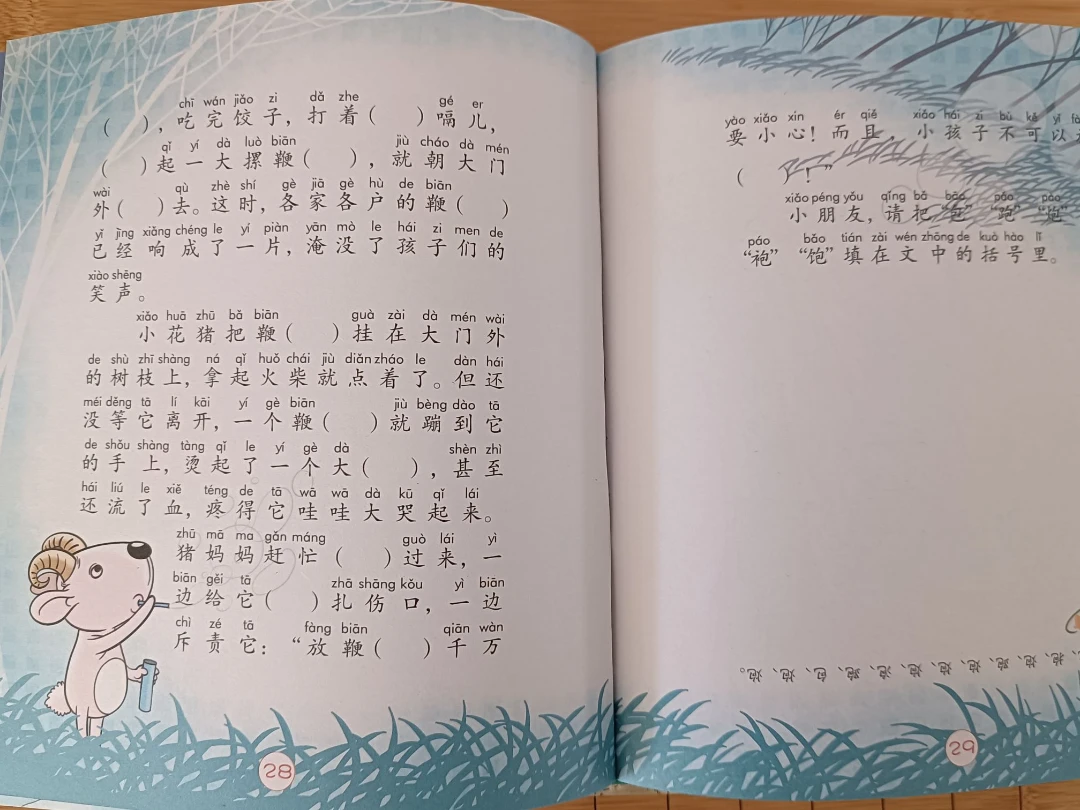 chī wán jiǎo zi dǎ zhe gé er
( ),吃完饺子,打着( )嗝儿,
qǐ yí dà luò biān jiù cháo dà mén
( )起一大摞鞭( ),就朝大门
wài qù zhè shí gè jiā gè hù de biān
外( )去。这时,各家各户的鞭( )
yǐ jīng xiǎng chéng le yí piàn yān mò le hái zi men de
已经响成了一片,淹没了孩子们的
xiào shēng
笑声。
xiǎo huā zhū bǎ biān guà zài dà mén wài
小花猪把鞭( )挂在大门外
de shù zhī shàng ná qǐ huǒ chái jiù diǎn zháo le dàn hái
的树枝上,拿起火柴就点着了。但还
méi děng tā lí kāi yí gè biān jiù bèng dào tā
没等它离开,一个鞭( )就蹦到它
de shǒu shàng tàng qǐ le yí gè dà shèn zhì
的手上,烫起了一个大( ),甚至
hái liú le xiě téng de tā wā wā dà kū qǐ lái
还流了血,疼得它哇哇大哭起来。
zhū mā ma gǎn máng guò lái yì
猪妈妈赶忙( )过来,一
biān gěi tā zhā shāng kǒu yì biān
边给它( )扎伤口,一边
chì zé tā fàng biān qiān wàn
斥责它:“放鞭( )千万
28
yào xiǎo xīn ér qiě xiǎo hái zi bù kě yǐ
要小心!而且,小孩子不可以
( )!”
xiǎo péng yǒu qǐng bǎ bāo pǎo pào
小朋友,请把“包”“跑”“炮”
páo bǎo tián zài wén zhōng de kuò hào lǐ
“袍”“饱”填在文中的括号里。
29